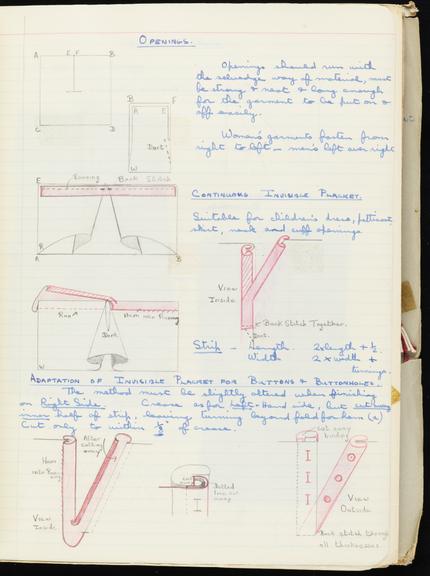 OPENINGS.
A E, F B
C D
B F
A E
Dart
W
Openings should run with
the selvedge way of material, must
be strong & neat & long enough
for the garment to be put on &
off easily.
Women's garments fasten from
right to left - men's left over right
Running Back Stitch
E F
A B
CONTINUOUS INVISIBLE PLACKET.
Suitable for children's dress, petticoat,
skirt, neck and cuff openings
View
Inside
Back Stitch Together.
Dart.
Run Hem into Running
Dart
W
Strip - Length 2 x length + ½
Width 2 x width +
turnings.
ADAPTATION OF INVISIBLE PLACKET FOR BUTTONS & BUTTONHOLES.
The method must be slightly altered when finishing
on Right Side. Crease as for Left-Hand side, but cut away
inner half of strip, leaving turning beyond fold for hem (a)
Cut only to within ⅛" of crease.
Hem
into Running
After
cutting
away
View
Inside
Dotted
line cut
away
Cut away
under
View
Outside
Back stitch through
all thicknesses.